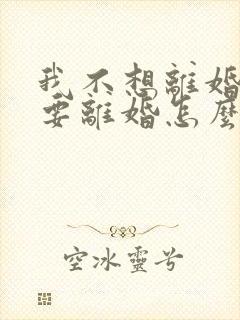 我不想離婚
要離婚怎麼
空冰靈兮